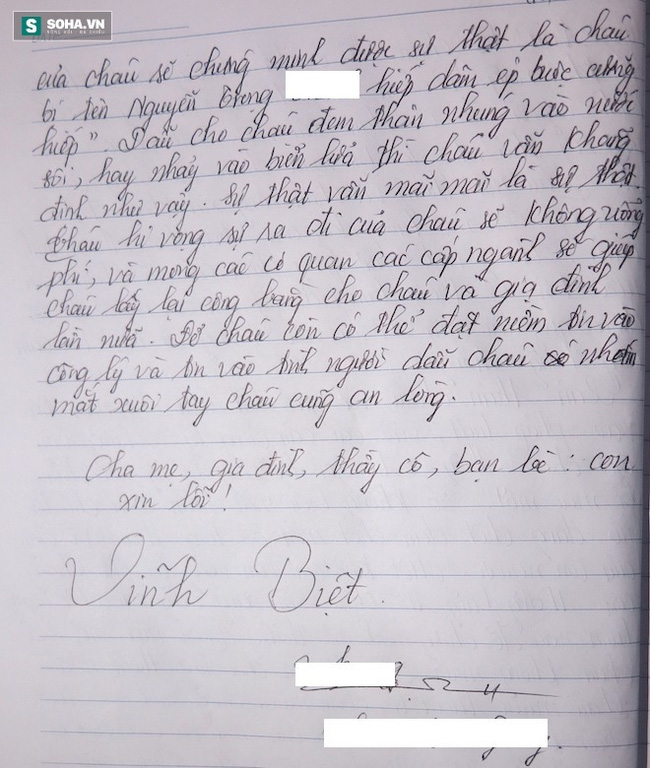 S SOHA.VN
của cháu sẽ chứng minh được sự thật là cháu
bị tên Nguyễn Trọng hiếp dâm ép buộc cưỡng
hiếp". Dẫu cho cháu đem thân nhúng vào nước
sôi, hay nhảy vào biển lửa thì cháu vẫn khẳng
định như vậy. Sự thật vẫn mãi mãi là sự thật.
Cháu hi vọng sự ra đi của cháu sẽ không uổng
phí, và mong các cơ quan các cấp ngành sẽ giúp
cháu lấy lại công bằng cho cháu và gia đình
lần nữa. Để cháu còn có thể đặt niềm tin vào
công lý và tin vào tình người dẫu cháu có nhắm
mắt xuôi tay cháu cũng an lòng.
Cha mẹ, gia đình, thầy cô, bạn bè: con
xin lỗi!
Vĩnh Biệt.